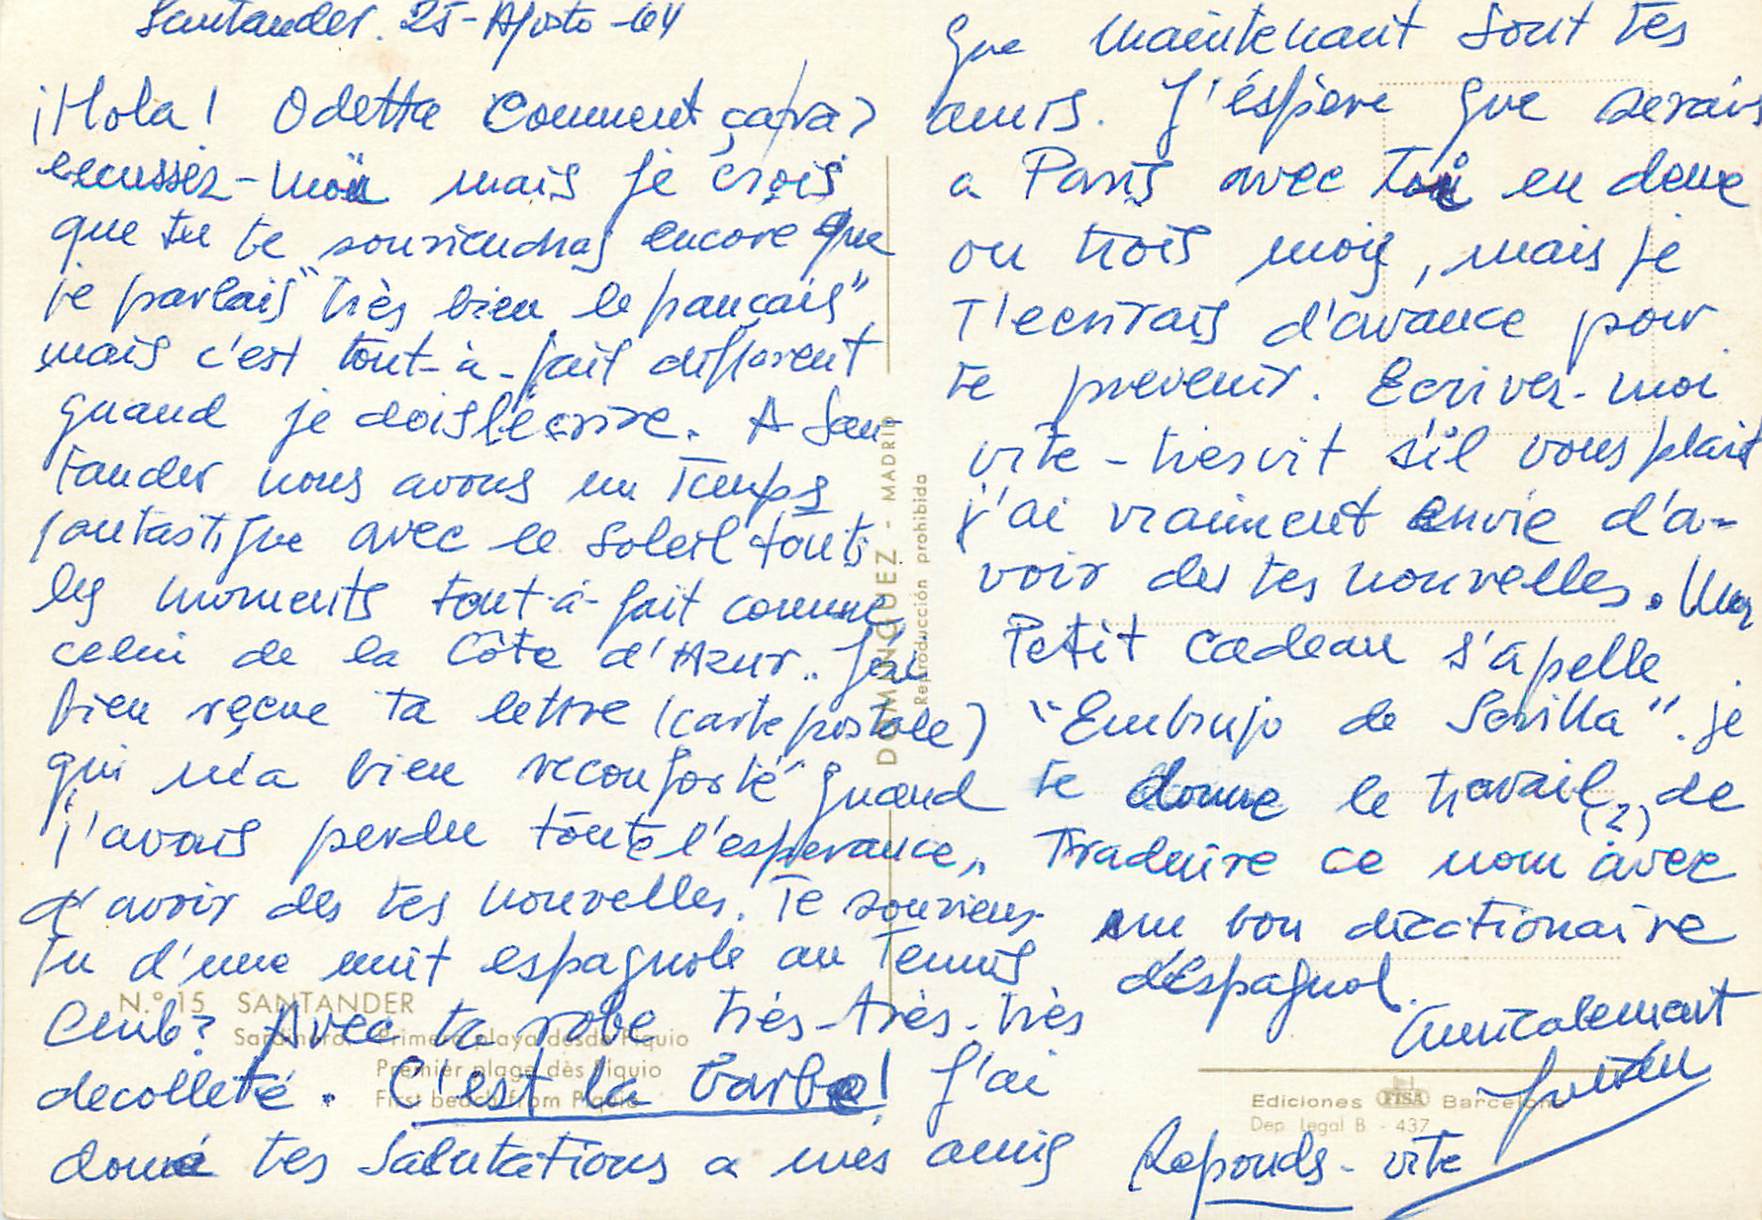 Santander. 25-Agosto-64
¡Hola! Odette Comment ça va?
excussez-moi mais je crois
que tu te souviendras encore que
je parlais "très bien le français"
mais c'est tout-à-fait different
quand je dois l'ecrire. A San-
tander nous avons un Temps
fantastique avec le soleil touts
les moments tout-à-fait comme
celui de la Côte d'Azur. J'ai
bien reçue ta lettre (carte postale)
qui m'a bien reconforté quand
j'avais perdu toute l'esperance,
d'avoir des tes nouvelles. Te souviens
tu d'une nuit espagnole au Tennis
Club? Avec ta robe très-très-très
decolleté. C'est la barbe! J'ai
donné tes salutations a mes amis
que maintenant sont tes
amis. J'éspère que serais
a Paris avec toi en deux
ou trois mois, mais je
T'ecrirais d'avance pour
te prevenir. Ecrivez-moi
vite-tresvit s'il vous plait
j'ai vraiment envie d'a-
voir des tes nouvelles. Un
Petit cadeau s'apelle
"Embrujo de Sevilla". je
te donne le travail (?) de
Traduire ce nom avec
un bon dicctionaire
d'Espagnol.
Amicalement
Reponds-vite
N.º 15 SANTANDER
Sardinero, Primera playa desde Piquio
Premier plage dès Piquio
First beach from Piquio
DOMINGUEZ - MADRID
Reproducción prohibida
Ediciones FISA Barcelona
Dep. Legal B - 437